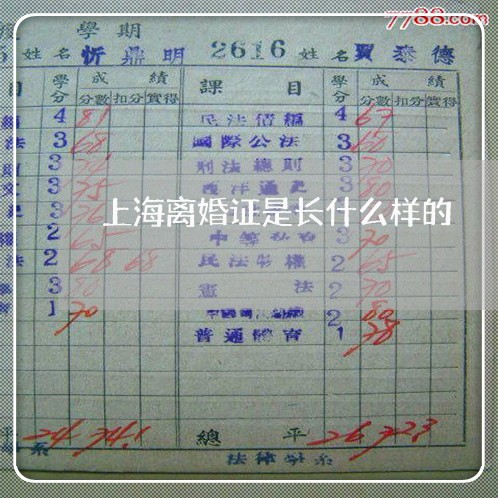 7788.com
學期
姓名 忻鼎明 2616 姓名 賈泰德
目 學分 成績 課目 學分 成績
分數 扣分 實得 分數 扣分 實得
4 81 民法債編 4 67
法 3 68 國際公法 3 60
3 刑法總則 3 70
3 75 西洋通史 3 80
上海离婚证是长什么样的
2 65 3 70
法 2 68 68 民法物權 2 65
3 80 憲法 2 70
1 70 2 80
普通體育 1 78
總平
法律學系